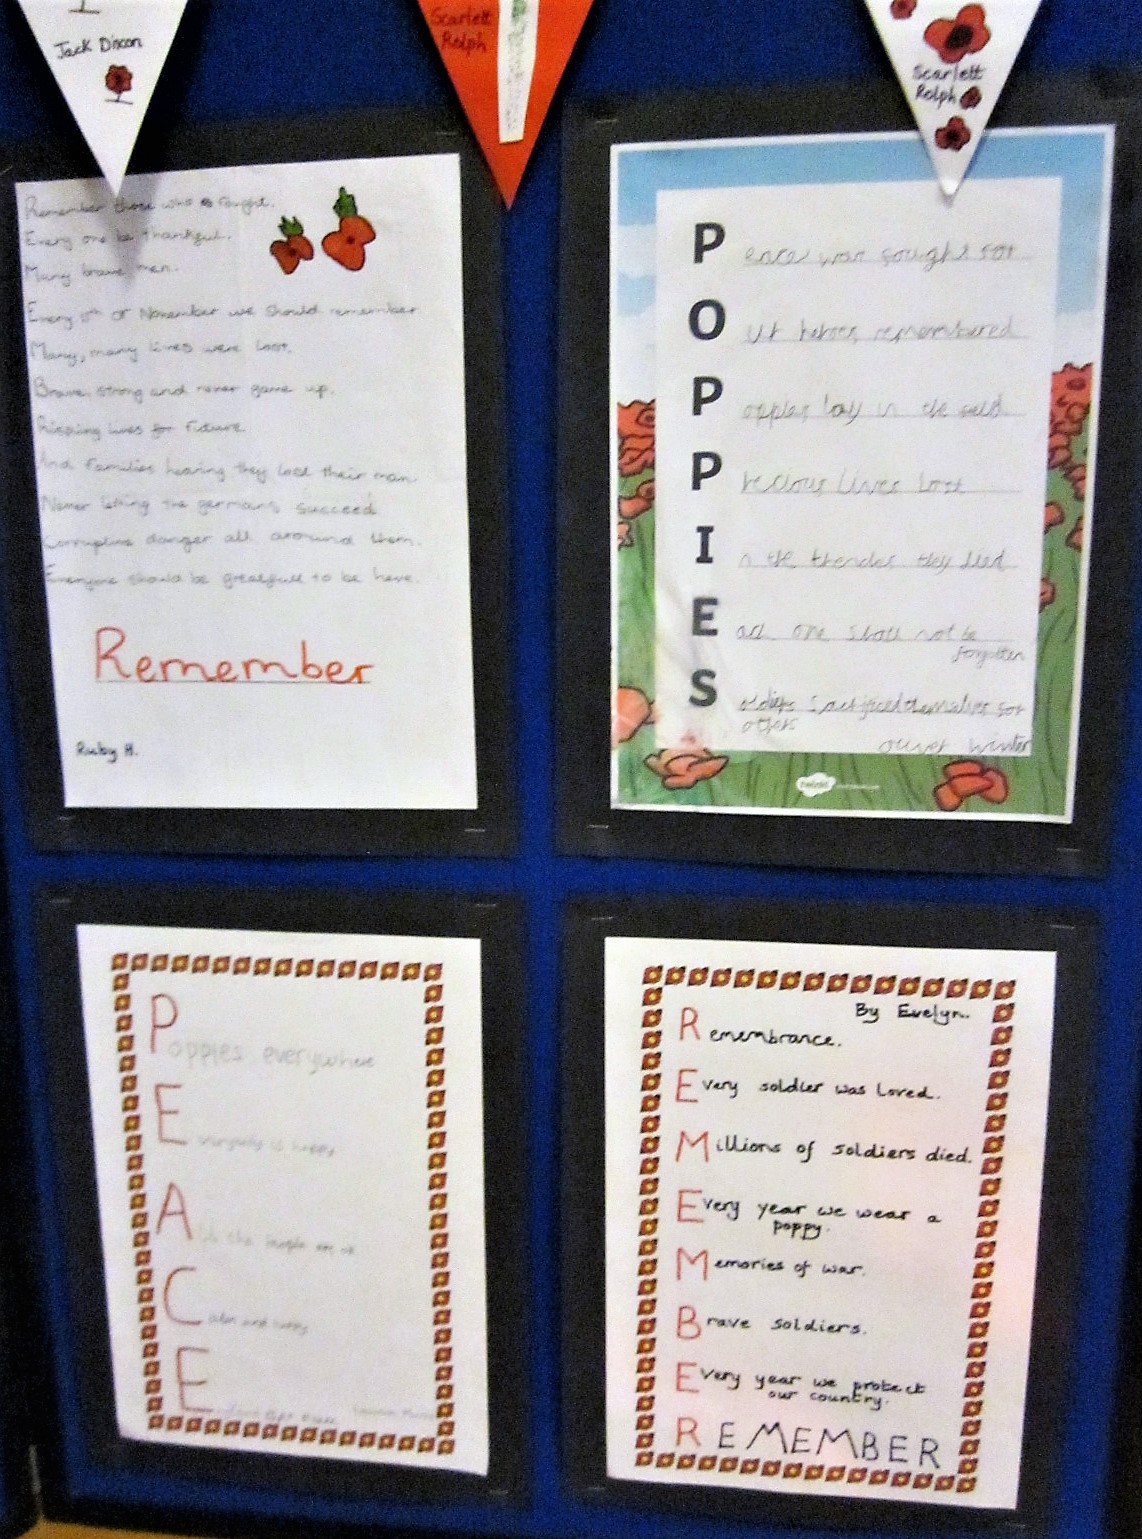 Jack Dixon
Scarlett
Rolph
Scarlett
Rolph
Remember those who fought.
Every one be thankful.
Many brave men.
Every 11th of November we should remember
Many, many lives were lost.
Brave, strong and never gave up.
Risping lives for future
And families hearing they lost their man.
Never letting the germans succeed
danger all around them.
Everyone should be greatfull to be here.
Remember
Ruby H.
Peace was fought for
Our heroes remembered
Poppies lay in the feild.
Precious lives lost
In the thender they died
Each one shall not be
forgotten
Soldiers sacrificed themselves for
others
oliver winter
twinkl
Poppies everywhere
Everybody is happy
All the people are
Calm and happy
E
By Evelyn.
Remembrance.
Every soldier was loved.
Millions of soldiers died.
Every year we wear a
poppy.
Memories of war.
Brave soldiers.
Every year we protect
our country.
REMEMBER